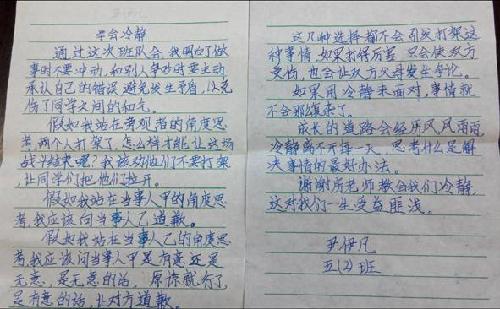 学会冷静
通过这次班队会,我明白了做
事时不要冲动,和别人争吵时要主动
承认自己的错误,避免发生矛盾,以免
伤了同学之间的和气。
假如我站在旁观者的角度思
考,两个人打架了,怎么样才能让这场
战斗结束呢?我该劝他们不要打架,
让同学们把他们拉开。
假如我站在当事人甲的角度思
考,我应该向当事人乙道歉。
假如我站在当事人乙的角度思
考,我应该问当事人甲是有意还是
无意,是无意的话,原谅就行了,
是有意的话,让对方道歉。
这几种选择都不会引发打架这
种事情,如果打得厉害,只会使双方
受伤,也会让双方父母发生争忆。
如果用冷静来面对,事情就
不会那么复杂了。
成长的道路会经历风风雨雨,
冷静离不开每一天,思考什么是解
决事情的最好办法。
谢谢所老师教会我们冷静,
这对我们一生受益匪浅。
尹伊凡
五(2)班